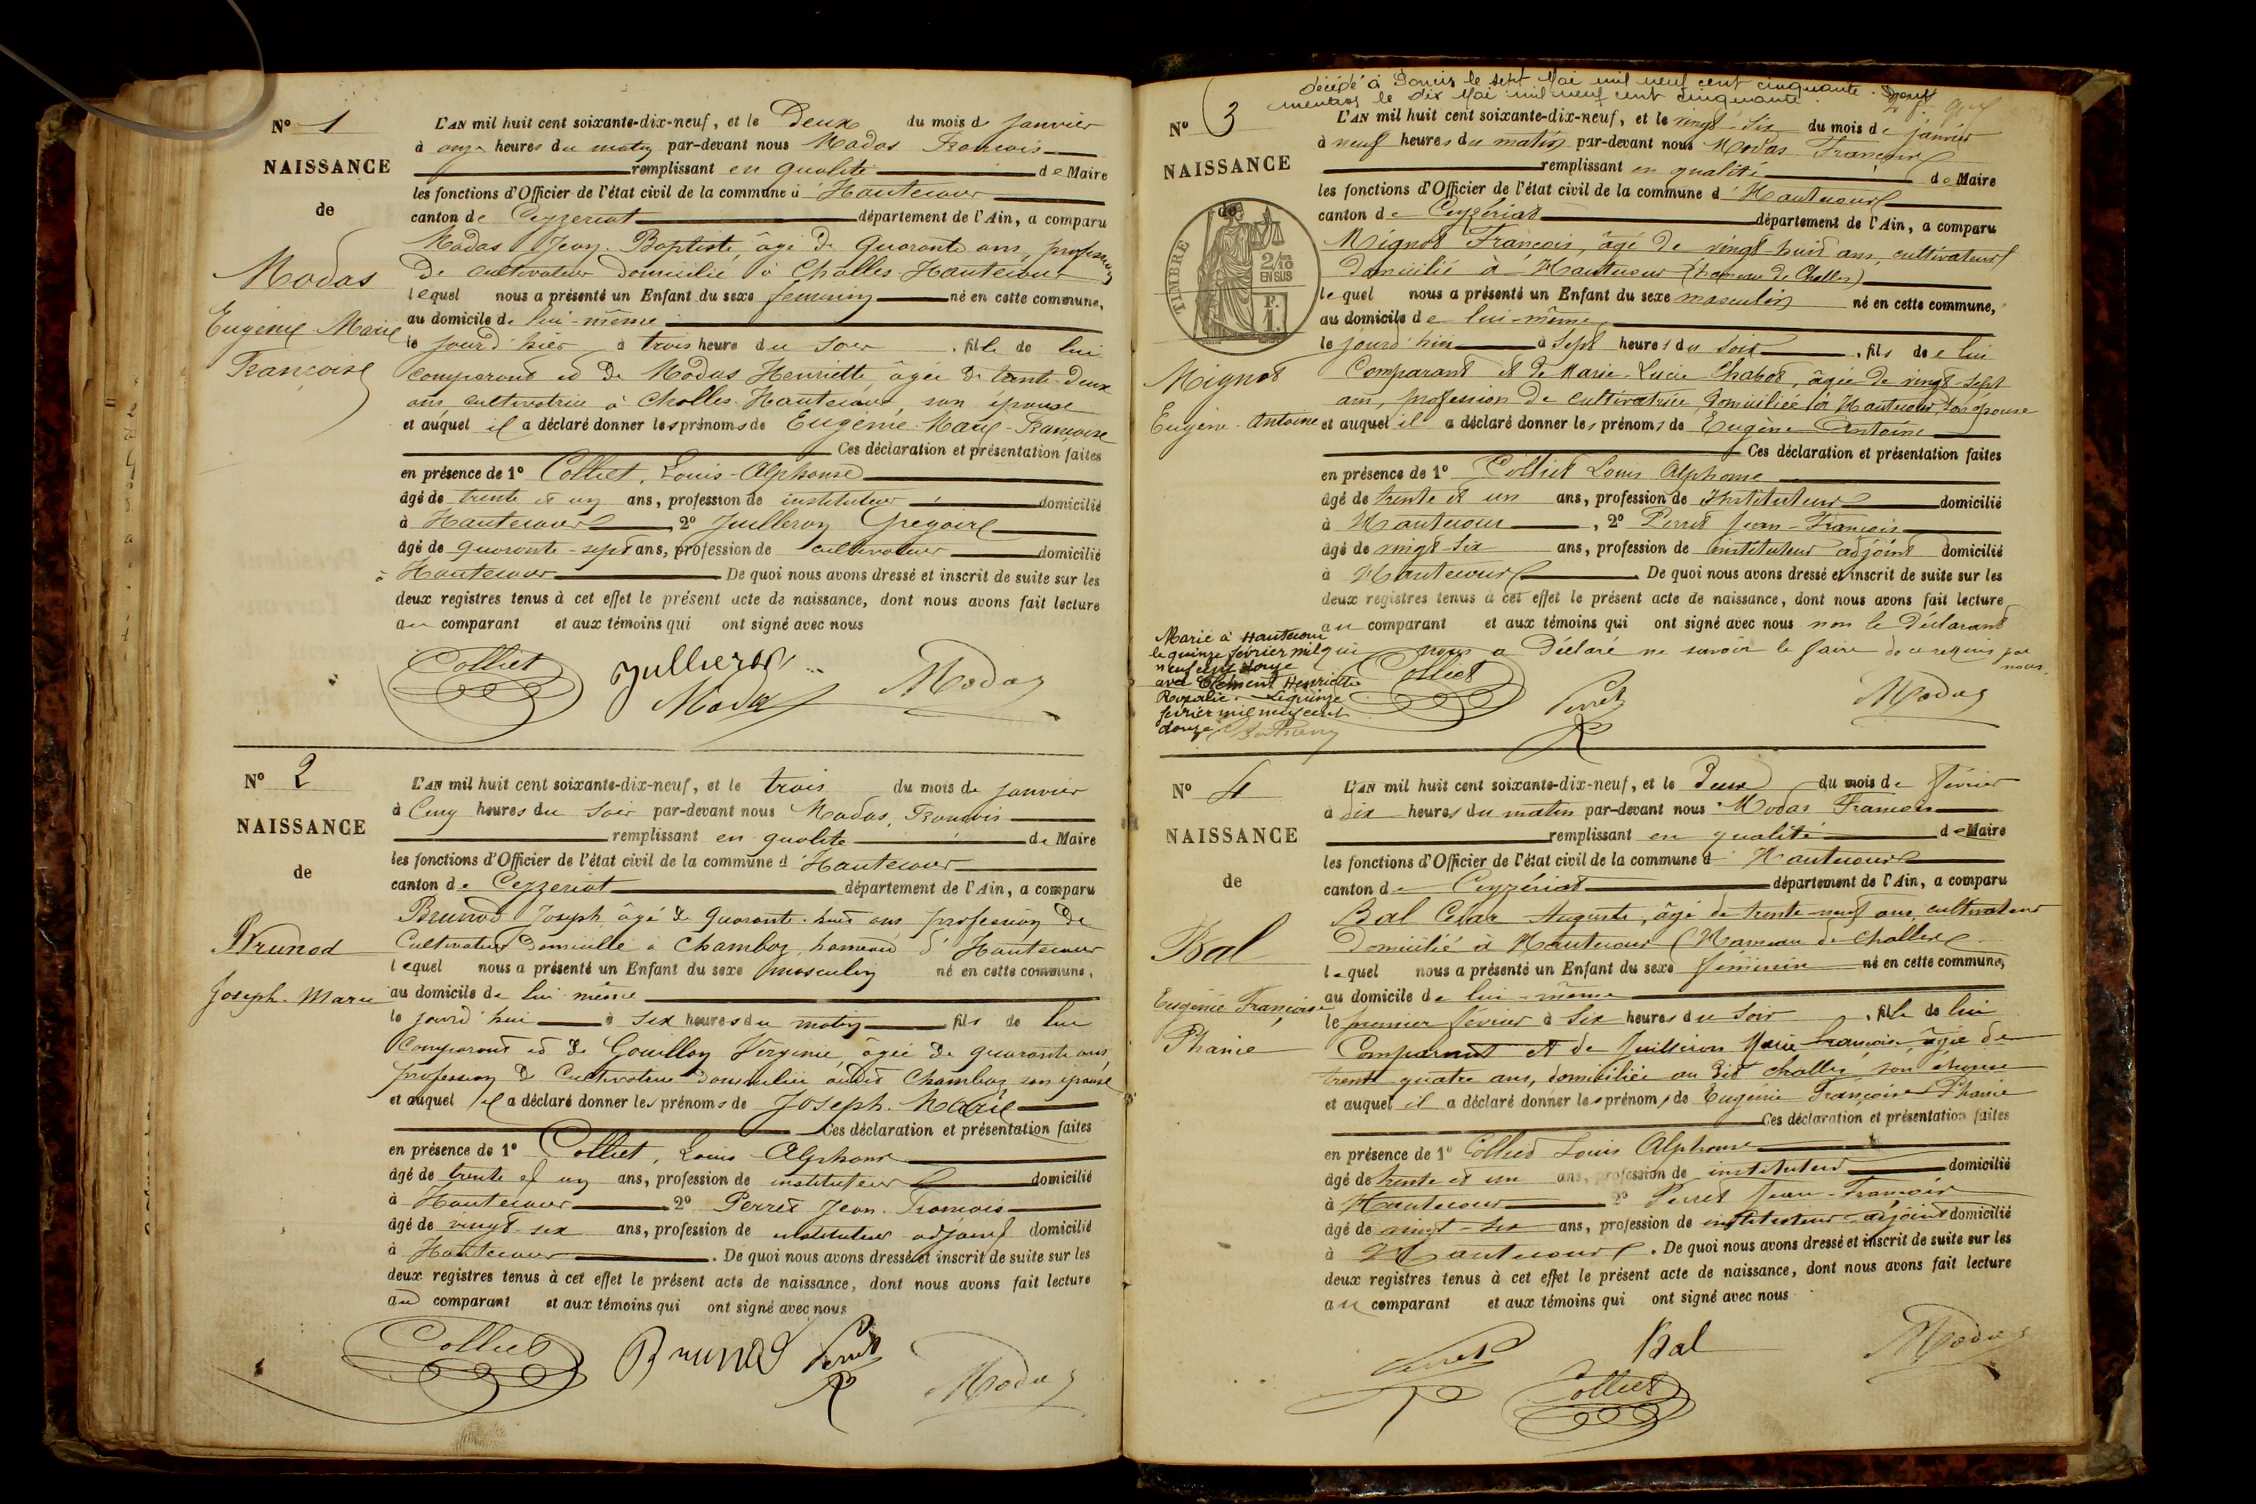 N° 1
NAISSANCE
de
Modas
Eugénie Marie
Françoise
L'AN mil huit cent soixante-dix-neuf, et le Deux du mois de janvier
à onze heures du matin par-devant nous Modas François
remplissant en qualité de Maire
les fonctions d'Officier de l'état civil de la commune d'Hautecour
canton de Ceyzeriat département de l'Ain, a comparu
Modas Jean-Baptiste, âgé de quarante ans, profession
de cultivateur domicilié à Challes Hautecour
lequel nous a présenté un Enfant du sexe féminin né en cette commune,
au domicile de lui-même
le jourd'hier à trois heure du soir, fille de lui
comparant et de Modas Henriette âgée de trente-deux
ans cultivatrice à Challes Hautecour, son épouse
et auquel il a déclaré donner les prénoms de Eugénie-Marie-Françoise
Ces déclaration et présentation faites
en présence de 1° Colliet, Louis-Alphonse
âgé de trente et un ans, profession de instituteur domicilié
à Hautecour, 2° Juilleron Grégoire
âgé de quarante-sept ans, profession de cultivateur domicilié
à Hautecour De quoi nous avons dressé et inscrit de suite sur les
deux registres tenus à cet effet le présent acte de naissance, dont nous avons fait lecture
au comparant et aux témoins qui ont signé avec nous
Colliet Jullieron Modas
Modas
N° 2
NAISSANCE
de
Brunod
Joseph-Marie
L'AN mil huit cent soixante-dix-neuf, et le trois du mois de janvier
à Cinq heures du soir par-devant nous Modas, François
remplissant en qualité de Maire
les fonctions d'Officier de l'état civil de la commune d'Hautecour
canton de Ceyzeriat département de l'Ain, a comparu
Brunod Joseph âgé de quarante-huit ans profession de
Cultivateur domicilié à Chamboz, hameau d'Hautecour
lequel nous a présenté un Enfant du sexe masculin né en cette commune,
au domicile de lui même
le jourd'hui à six heures du matin fils de lui
Comparant et de Gouillon Virginie, âgée de quarante ans,
profession de Cultivatrice domiciliée audit Chamboz, son épouse
et auquel il a déclaré donner les prénoms de Joseph-Marie
Ces déclaration et présentation faites
en présence de 1° Colliet, Louis-Alphonse
âgé de trente et un ans, profession de instituteur domicilié
à Hautecour 2° Perret Jean-François
âgé de vingt-six ans, profession de instituteur adjoint domicilié
à Hautecour. De quoi nous avons dressé et inscrit de suite sur les
deux registres tenus à cet effet le présent acte de naissance, dont nous avons fait lecture
au comparant et aux témoins qui ont signé avec nous
Colliet Brunod Perret
Modas
décédé à Doncis le sept Mai mil neuf cent cinquante. Dont
mention le dix Mai mil neuf cent cinquante.
N° 3
NAISSANCE
de
TIMBRE
2/10
EN SUS
F.
1.
Mignot
Eugène-Antoine
L'AN mil huit cent soixante-dix-neuf, et le vingt-six du mois de janvier
à neuf heures du matin par-devant nous Modas François
remplissant en qualité de Maire
les fonctions d'Officier de l'état civil de la commune d'Hautecour
canton de Ceyzériat département de l'Ain, a comparu
Mignot François, âgé de vingt-huit ans, cultivateur
Domicilié à Hautecour (hameau de Challes)
lequel nous a présenté un Enfant du sexe masculin né en cette commune,
au domicile de lui-même
le jourd'hier à sept heures du soir, fils de lui
Comparant et de Marie-Lucie Chabot, âgée de vingt-sept
ans, profession de cultivatrice domiciliée à Hautecour, son épouse
et auquel il a déclaré donner les prénoms de Eugène Antoine
Ces déclaration et présentation faites
en présence de 1° Colliet Louis Alphonse
âgé de trente et un ans, profession de Instituteur domicilié
à Hautecour, 2° Perret Jean-François
âgé de vingt-six ans, profession de instituteur adjoint domicilié
à Hautecour. De quoi nous avons dressé et inscrit de suite sur les
deux registres tenus à cet effet le présent acte de naissance, dont nous avons fait lecture
au comparant et aux témoins qui ont signé avec nous non le Déclarant
qui nous a Déclaré ne savoir le faire de ce requis par
nous.
Marié à Hautecour
le quinze février mil
neuf cent douze
avec Clément Henriette
Rosalie. Le quinze
février mil neuf cent
douze
Colliet Perret Modas
N° 4
NAISSANCE
de
Bal
Eugénie Françoise
Phanie
L'AN mil huit cent soixante-dix-neuf, et le Deux du mois de février
à dix heures du matin par-devant nous Modas François
remplissant en qualité de Maire
les fonctions d'Officier de l'état civil de la commune d'Hautecour
canton de Ceyzériat département de l'Ain, a comparu
Bal César Auguste, âgé de trente-neuf ans, cultivateur
Domicilié à Hautecour (Hameau de Challes)
lequel nous a présenté un Enfant du sexe féminin né en cette commune,
au domicile de lui-même
le premier février à six heures du soir, fille de lui
Comparant et de Juilleron Marie Françoise, âgée de
trente-quatre ans, domiciliée au dit Challes, son épouse
et auquel il a déclaré donner les prénoms de Eugénie Françoise Phanie
Ces déclaration et présentation faites
en présence de 1° Colliet Louis Alphonse
âgé de trente et un ans, profession de instituteur domicilié
à Hautecour 2° Perret Jean-François
âgé de vingt-six ans, profession de instituteur adjoint domicilié
à Hautecour. De quoi nous avons dressé et inscrit de suite sur les
deux registres tenus à cet effet le présent acte de naissance, dont nous avons fait lecture
au comparant et aux témoins qui ont signé avec nous
Perret Bal Modas
Colliet